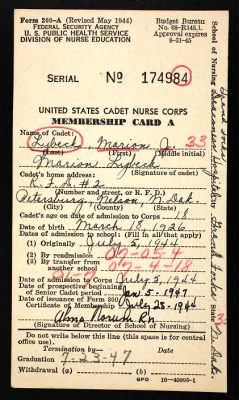 Form 300-A (Revised May 1944)
FEDERAL SECURITY AGENCY
U. S. PUBLIC HEALTH SERVICE
DIVISION OF NURSE EDUCATION
Budget Bureau
No. 68-R145.1.
Approval expires
8-31-45
SERIAL No 174984
UNITED STATES CADET NURSE CORPS
MEMBERSHIP CARD A
Name of Cadet:
Lybeck, Marion A. 33
(Last) (First) (Middle initial)
Marion Lybeck
Cadet's home address: (Signature of cadet)
R.F.D. #2
(Number and street, or R. F. D.)
Petersburg, Nelson, N. Dak.
(City) (County) (State)
Cadet's age on date of admission to Corps 18
Date of birth March 17, 1926
Dates of admission to school: (Fill in all that apply)
(1) Originally July 5, 1944
(2) By readmission 07-05-4
(3) By transfer from another school 07-4-18
Date of admission to Corps July 5, 1944
Date of prospective beginning of Senior Cadet period Jan 5-1947
Date of issuance of Form 300
Certificate of Membership July 25-1944
Alma Norum Rn
(Signature of Director of School of Nursing)
Do not write below this line (this space is for central office use).
Termination by—
Graduation 7-25-47
Withdrawal (a) (b)
GPO 16-40095-1
School of Nursing Deaconess Hospital
Grand Forks
State N. Dak.